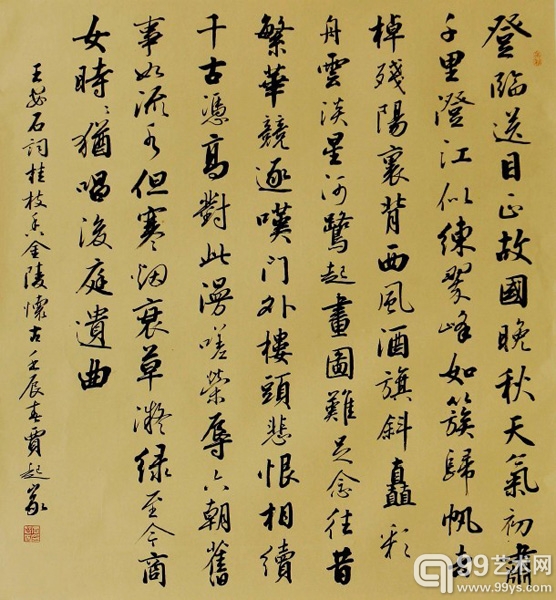 登臨送目正故國晚秋天氣初肅
千里澄江似練翠峰如簇歸帆去
棹殘陽裏背西風酒旗斜矗彩
舟雲淡星河鷺起畫圖難足念往昔
繁華競逐嘆門外樓頭悲恨相續
千古憑高對此漫嗟榮辱六朝舊
事如流水但寒烟衰草凝綠至今商
女時〻猶唱後庭遺曲
王安石詞桂枝香金陵懷古壬辰春賈起家
99艺术网
www.99ys.com